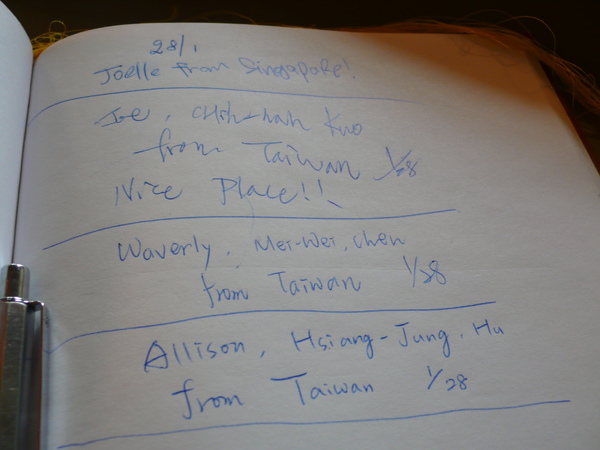 28/1
Joelle from Singapore!
Joe, Chih-hah Kuo
from Taiwan 1/28
Nice Place!!
Waverly, Mei-Wei, Chen
from Taiwan 1/28
Allison, Hsiang-Jung, Hu
from Taiwan 1/28